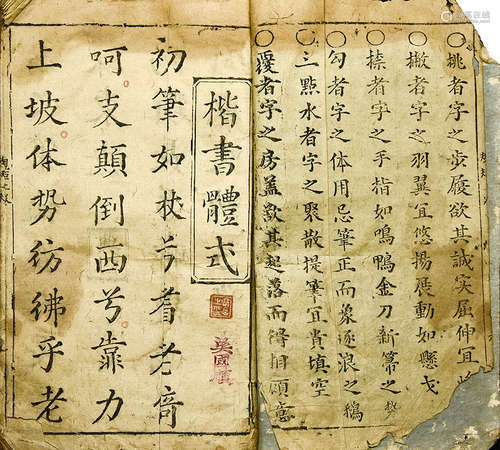 〇挑者字之步履欲其誠实屈伸宜
〇撇者字之羽翼宜悠揚展動如懸戈
〇捺者字之手指如鳴鴨金刀新篆之勢
〇勾者字之体用忌筆正而象逐浪之鵝
〇三點水者字之聚散提筆宜貴填空
〇覆者字之房蓋欲其起落而得相顧意
楷書體式
吳國
初筆如杖兮着老奇
呵支顛倒西兮靠力
上坡体势彷彿乎老